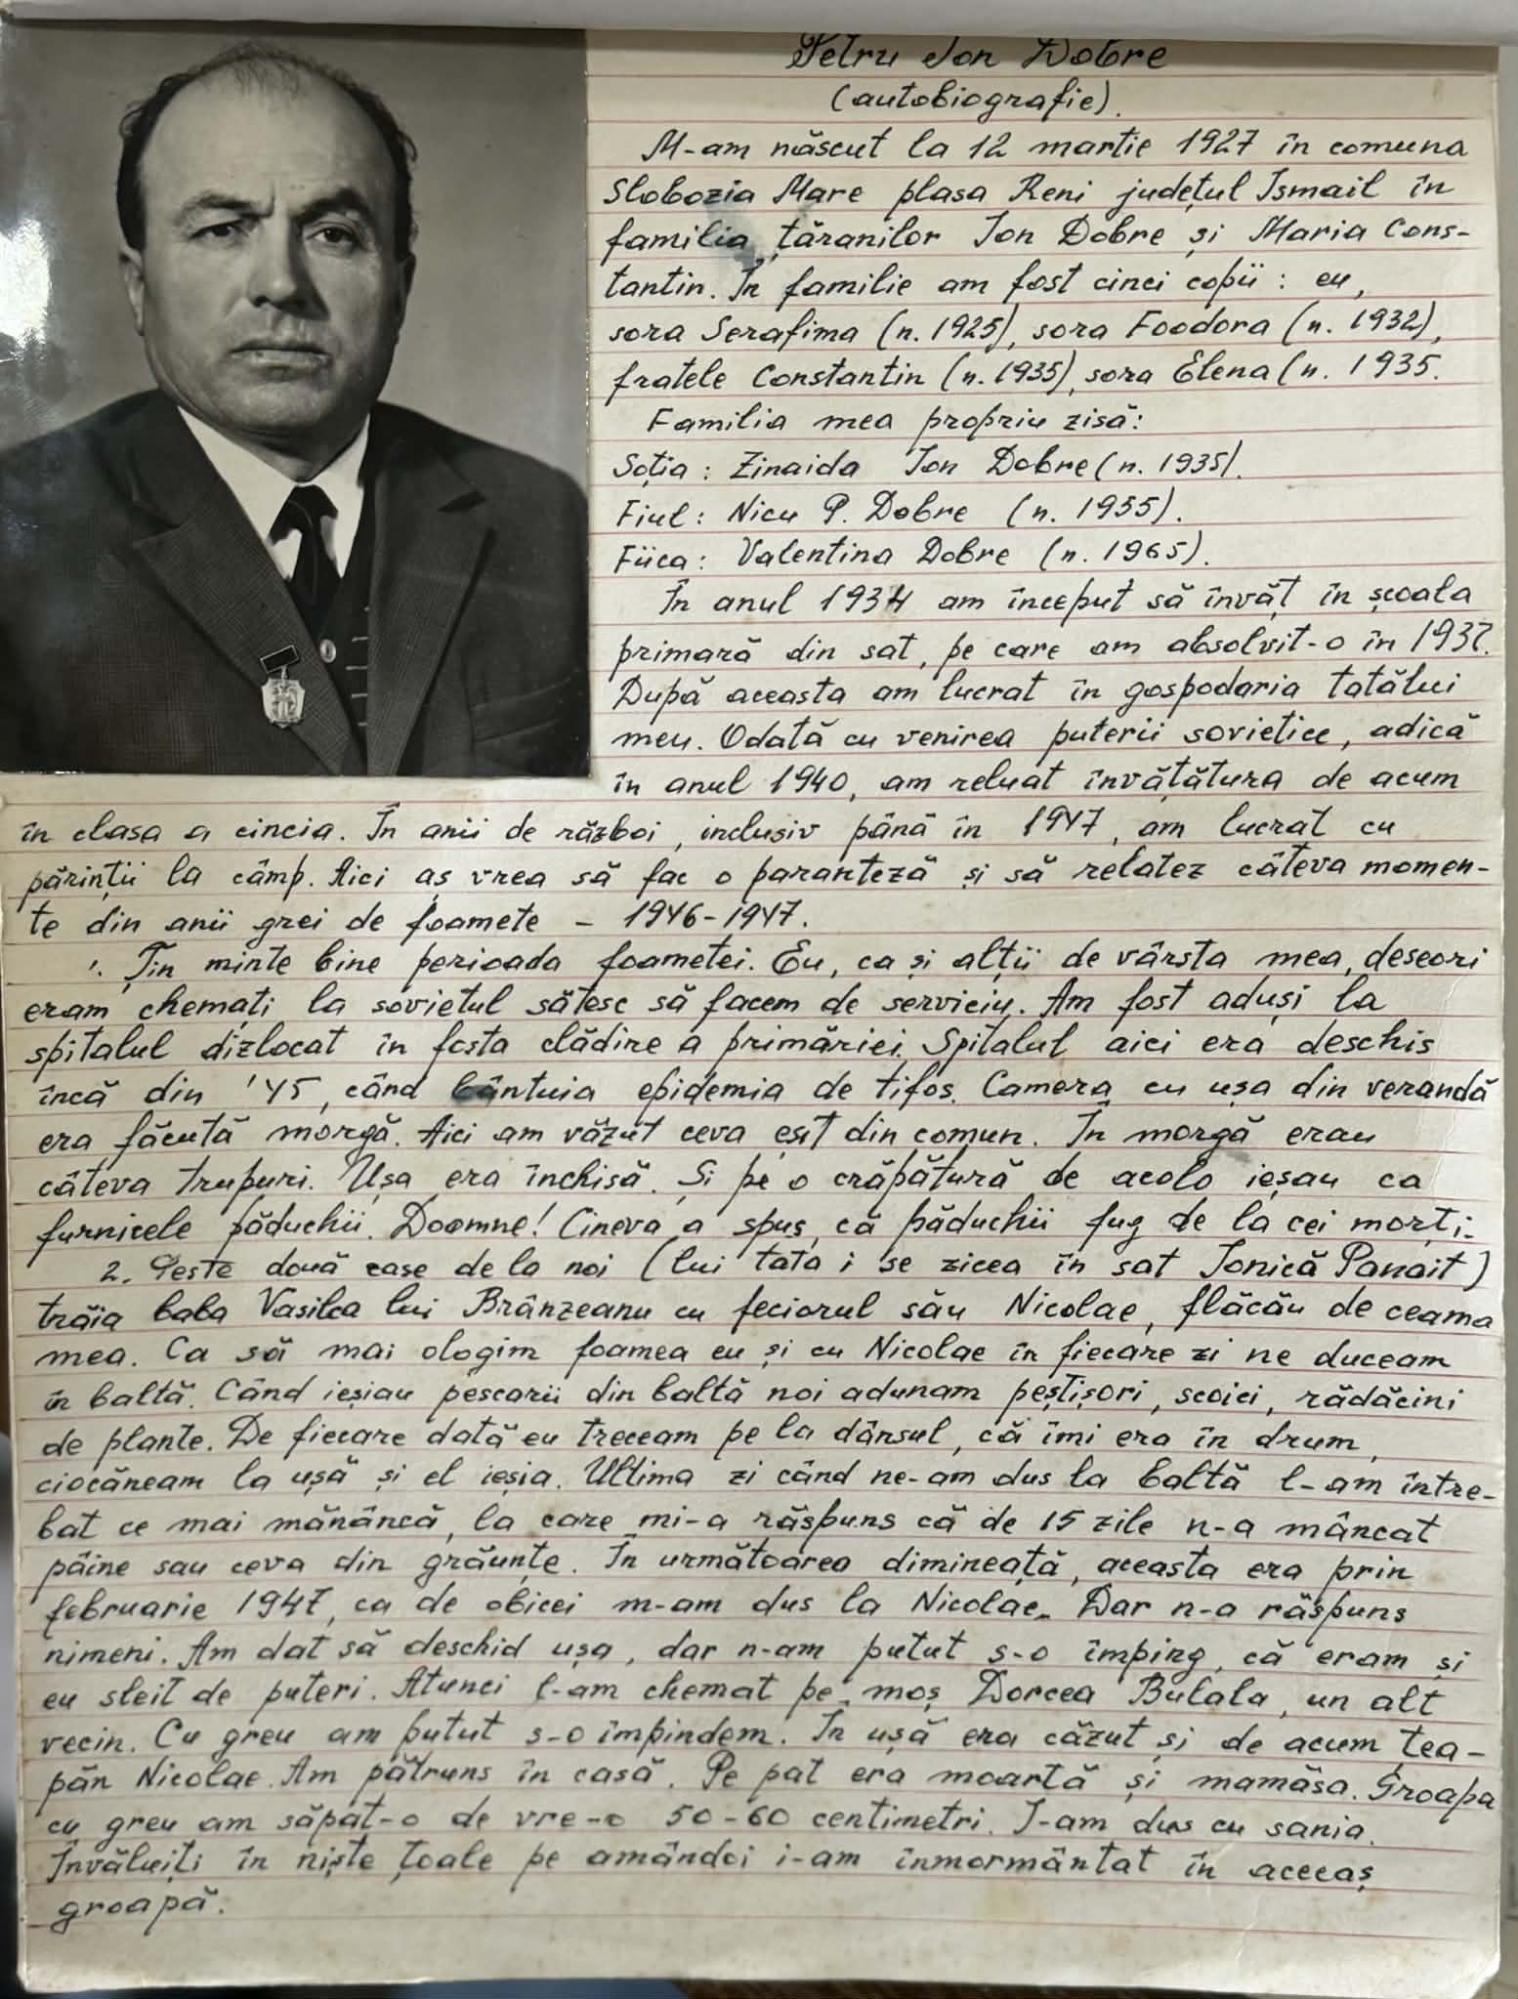 Petru Ion Dobre
(autobiografie).
M-am născut la 12 martie 1927 în comuna
Slobozia Mare plasa Reni județul Ismail în
familia țăranilor Ion Dobre și Maria Cons-
tantin. În familie am fost cinci copii : eu,
sora Serafima (n. 1925), sora Foodora (n. 1932),
fratele Constantin (n. 1935), sora Elena (n. 1935.
Familia mea propriu zisă:
Soția : Zinaida Ion Dobre (n. 1935).
Fiul : Nicu P. Dobre (n. 1955).
Fiica : Valentina Dobre (n. 1965).
În anul 1934 am început să învăț în școala
primară din sat, pe care am absolvit-o în 1937.
După aceasta am lucrat în gospodaria tatălui
meu. Odată cu venirea puterii sovietice, adică
în anul 1940, am reluat învățătura de acum
în clasa a cincia. În anii de război, inclusiv până în 1947, am lucrat cu
părinții la câmp. Aici aș vrea să fac o paranteză și să relatez câteva momen-
te din anii grei de foamete – 1946-1947.
1. Țin minte bine perioada foametei. Eu, ca și alții de vârsta mea, deseori
eram chemați la sovietul sătesc să facem de serviciu. Am fost aduși la
spitalul dizlocat în fosta clădire a primăriei. Spitalul aici era deschis
încă din '45, când bântuia epidemia de tifos. Camera cu ușa din verandă
era făcută morgă. Aici am văzut ceva eșit din comun. În morgă erau
câteva trupuri. Ușa era închisă. Și pe o crăpătură de acolo ieșau ca
furnicele păduchii. Doomne! Cineva a spus, că păduchii fug de la cei morți.
2. Peste două case de la noi (lui tata i se zicea în sat Ionică Panait)
trăia baba Vasilca lui Brânzeanu cu feciorul său Nicolae, flăcău de ceama
mea. Ca să mai ologim foamea eu și cu Nicolae în fiecare zi ne duceam
în baltă. Când ieșiau pescarii din baltă noi adunam peștișori, scoici, rădăcini
de plante. De fiecare dată eu treceam pe la dânsul, că îmi era în drum,
ciocăneam la ușă și el ieșia. Ultima zi când ne-am dus la baltă l-am între-
bat ce mai mănâncă, la care mi-a răspuns că de 15 zile n-a mâncat
pâine sau ceva din grăunțe. În următoarea dimineață, aceasta era prin
februarie 1947, ca de obicei m-am dus la Nicolae. Dar n-a răspuns
nimeni. Am dat să deschid ușa, dar n-am putut s-o împing, că eram și
eu sleit de puteri. Atunci l-am chemat pe moș Dorcea Bulala, un alt
vecin. Cu greu am putut s-o împindem. În ușă era căzut și de acum țea-
păn Nicolae. Am pătruns în casă. Pe pat era moartă și mamăsa. Groapa
cu greu am săpat-o de vre-o 50-60 centimetri. I-am dus cu sania.
Învăluiți în niște țoale pe amândoi i-am înmormântat în aceeaș
groapă.